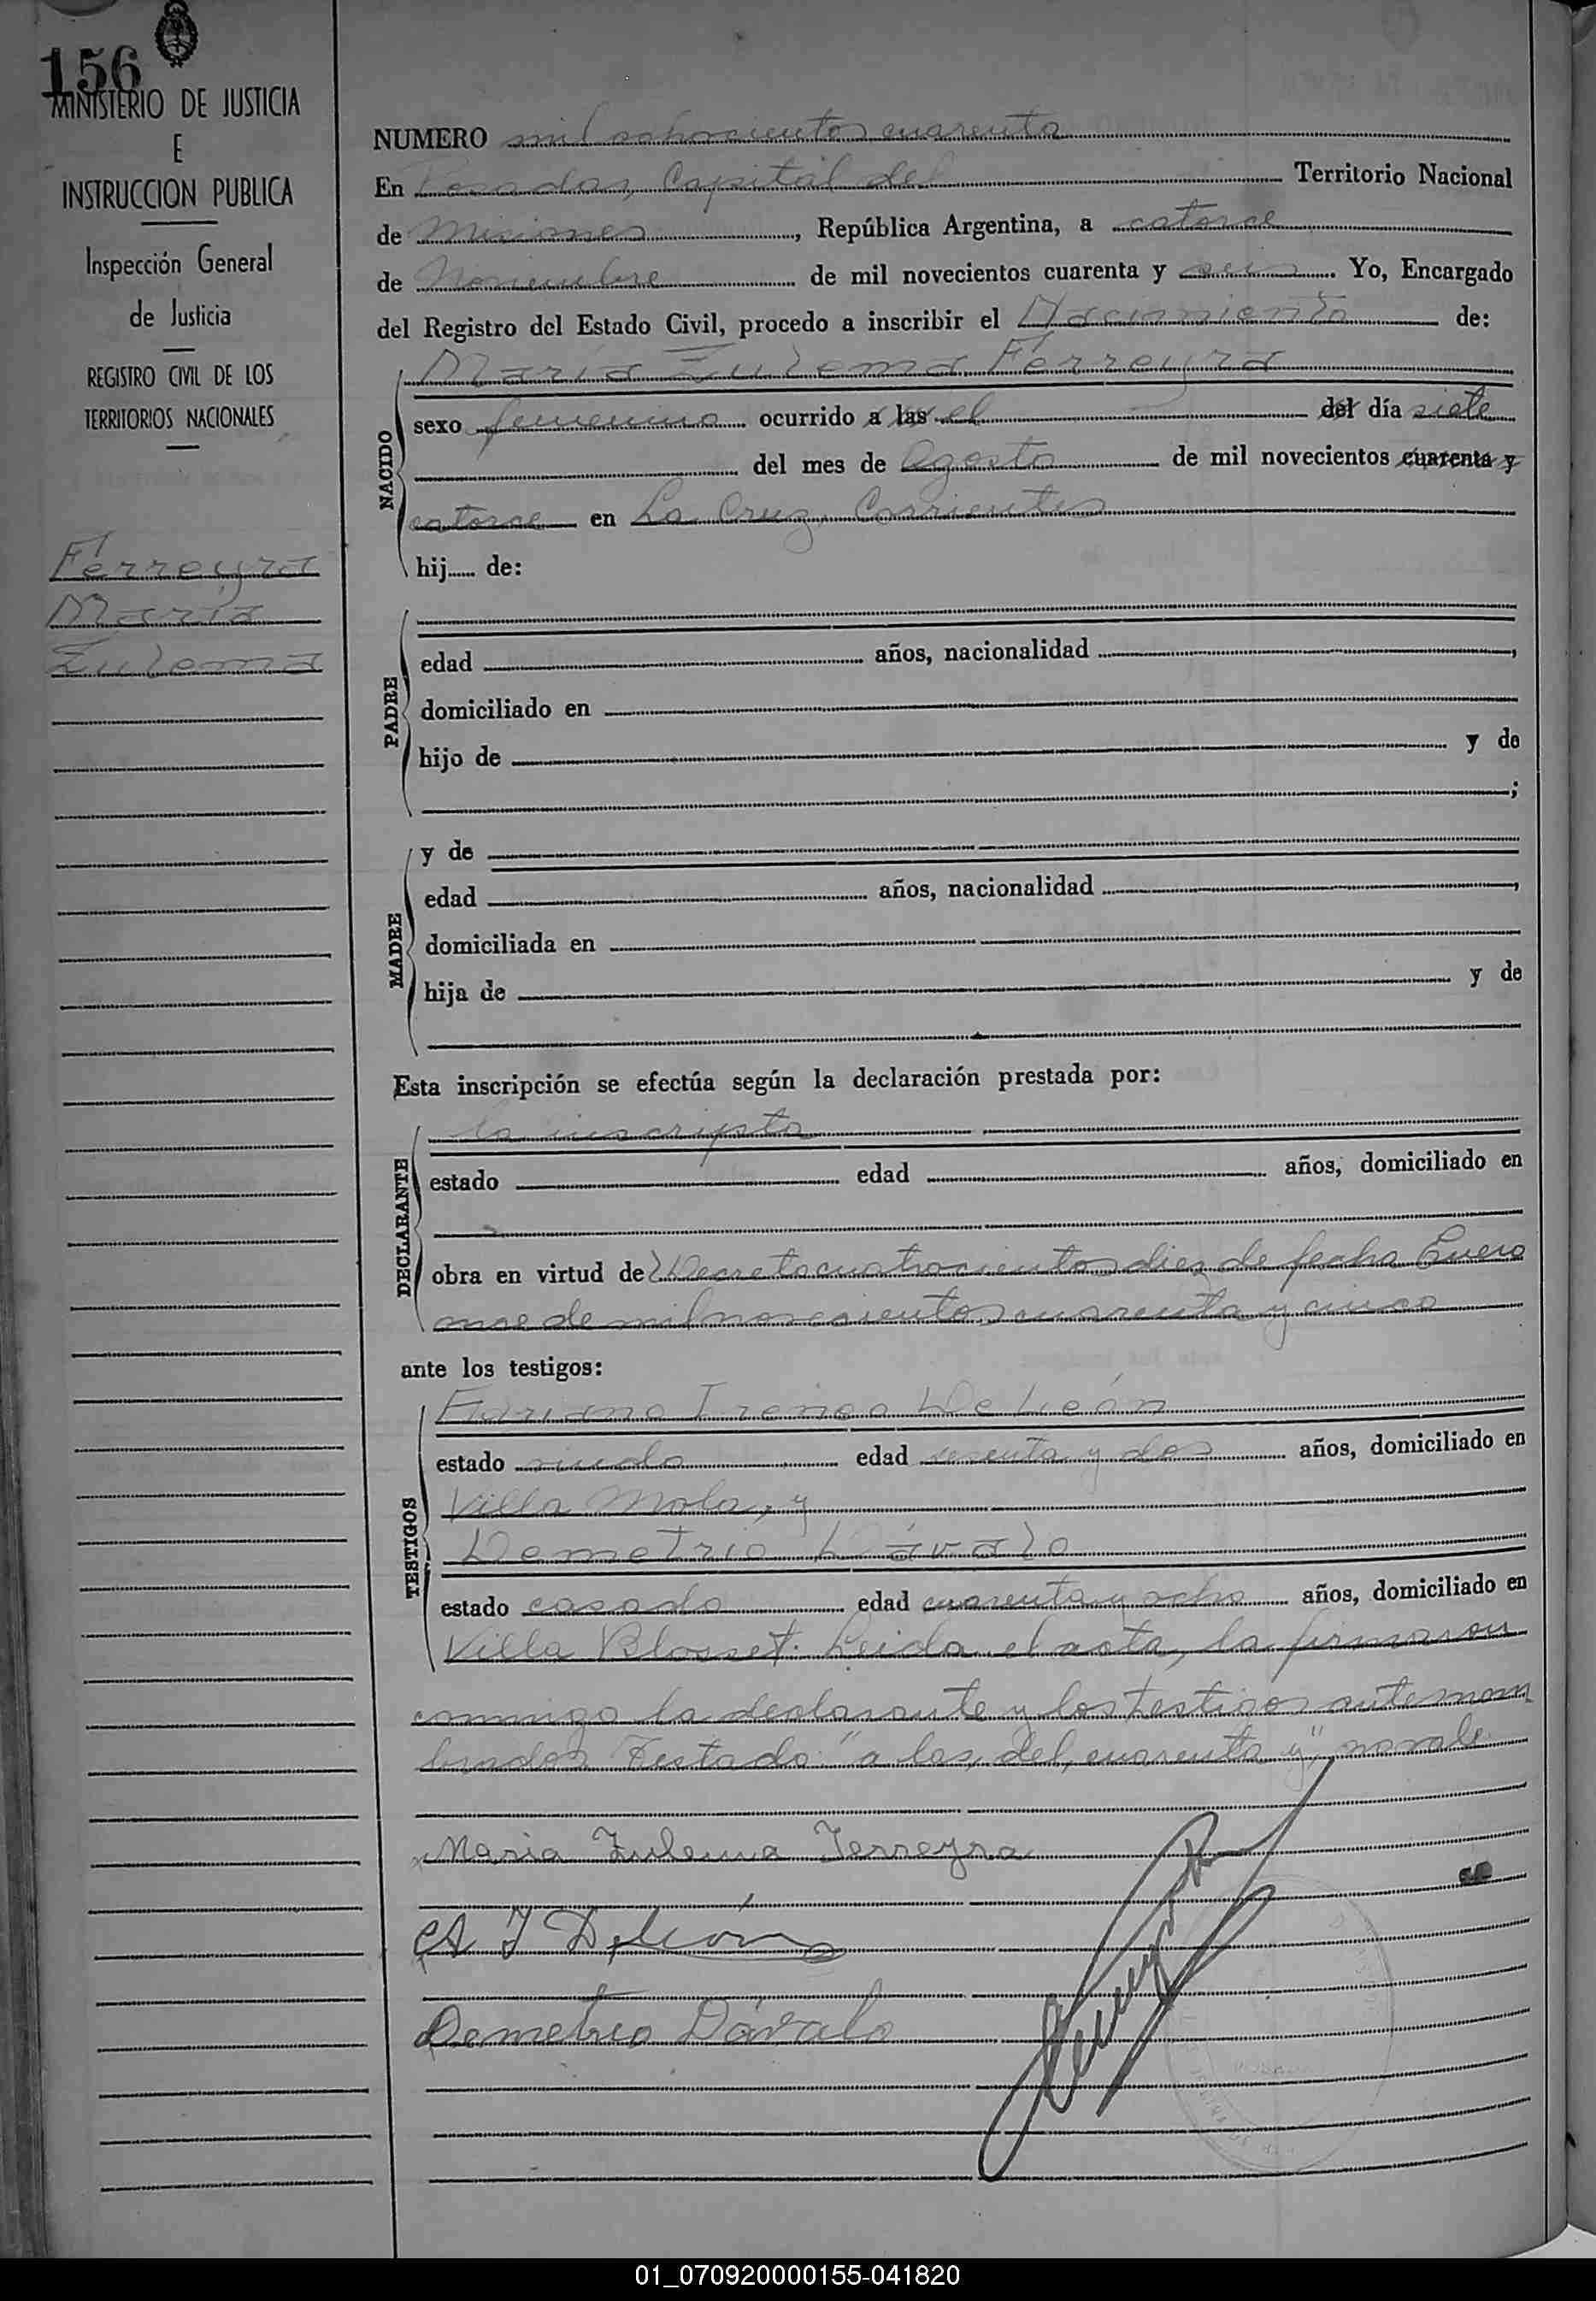 156
MINISTERIO DE JUSTICIA
E
INSTRUCCION PUBLICA
Inspección General
de Justicia
REGISTRO CIVIL DE LOS
TERRITORIOS NACIONALES
Ferreyra
María
Zulema
NUMERO mil ochocientos cuarenta
En Posadas, Capital del Territorio Nacional
de Misiones, República Argentina, a catorce
de Noviembre de mil novecientos cuarenta y seis. Yo, Encargado
del Registro del Estado Civil, procedo a inscribir el Nacimiento de:
NACIDO
María Zulema Ferreyra
sexo femenino ocurrido a las el del día siete
del mes de Agosto de mil novecientos cuarenta y
catorce en La Cruz, Corrientes
hij...... de:
PADRE
edad años, nacionalidad ,
domiciliado en
hijo de y de
;
MADRE
y de
edad años, nacionalidad ,
domiciliada en
hija de y de
Esta inscripción se efectúa según la declaración prestada por:
DECLARANTE
la inscripta
estado edad años, domiciliado en
obra en virtud de Decreto cuatrocientos diez de fecha Enero
once de mil novecientos cuarenta y cinco
ante los testigos:
TESTIGOS
Adriano Ireneo De León
estado viudo edad sesenta y dos años, domiciliado en
Villa Mola, y
Demetrio Dávalo
estado casado edad cuarenta y ocho años, domiciliado en
Villa Blosset. Leida el acta, la firmaron
conmigo la declarante y los testigos antenom
brados Testado: "a las, del, cuarenta y", no vale
Maria Zulema Ferreyra
A I De León
Demetrio Dávalo
01_070920000155-041820